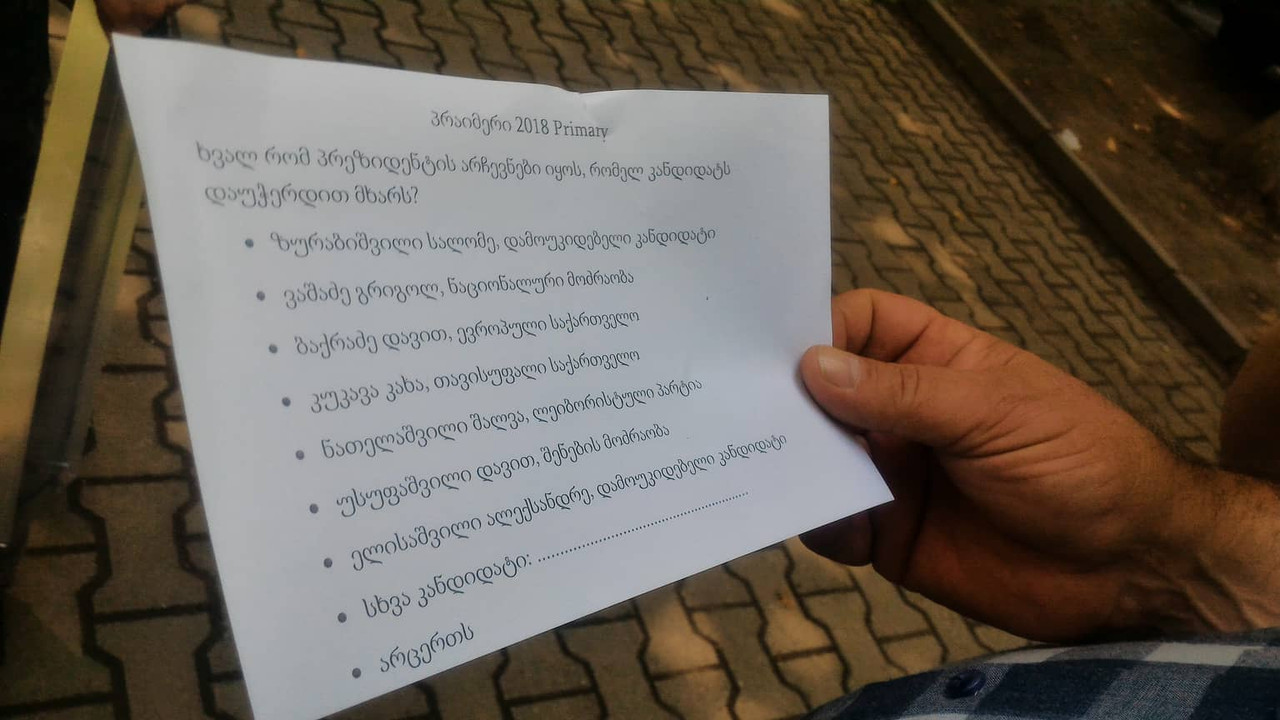 პრაიმერი 2018 Primary
ხვალ რომ პრეზიდენტის არჩევნები იყოს, რომელ კანდიდატს
დაუჭერდით მხარს?
• ზურაბიშვილი სალომე, დამოუკიდებელი კანდიდატი
• ვაშაძე გრიგოლ, ნაციონალური მოძრაობა
• ბაქრაძე დავით, ევროპული საქართველო
• კუკავა კახა, თავისუფალი საქართველო
• ნათელაშვილი შალვა, ლეიბორისტული პარტია
• უსუფაშვილი დავით, შენების მოძრაობა
• ელისაშვილი ალექსანდრე, დამოუკიდებელი კანდიდატი
• სხვა კანდიდატი: ......................................................
• არცერთს